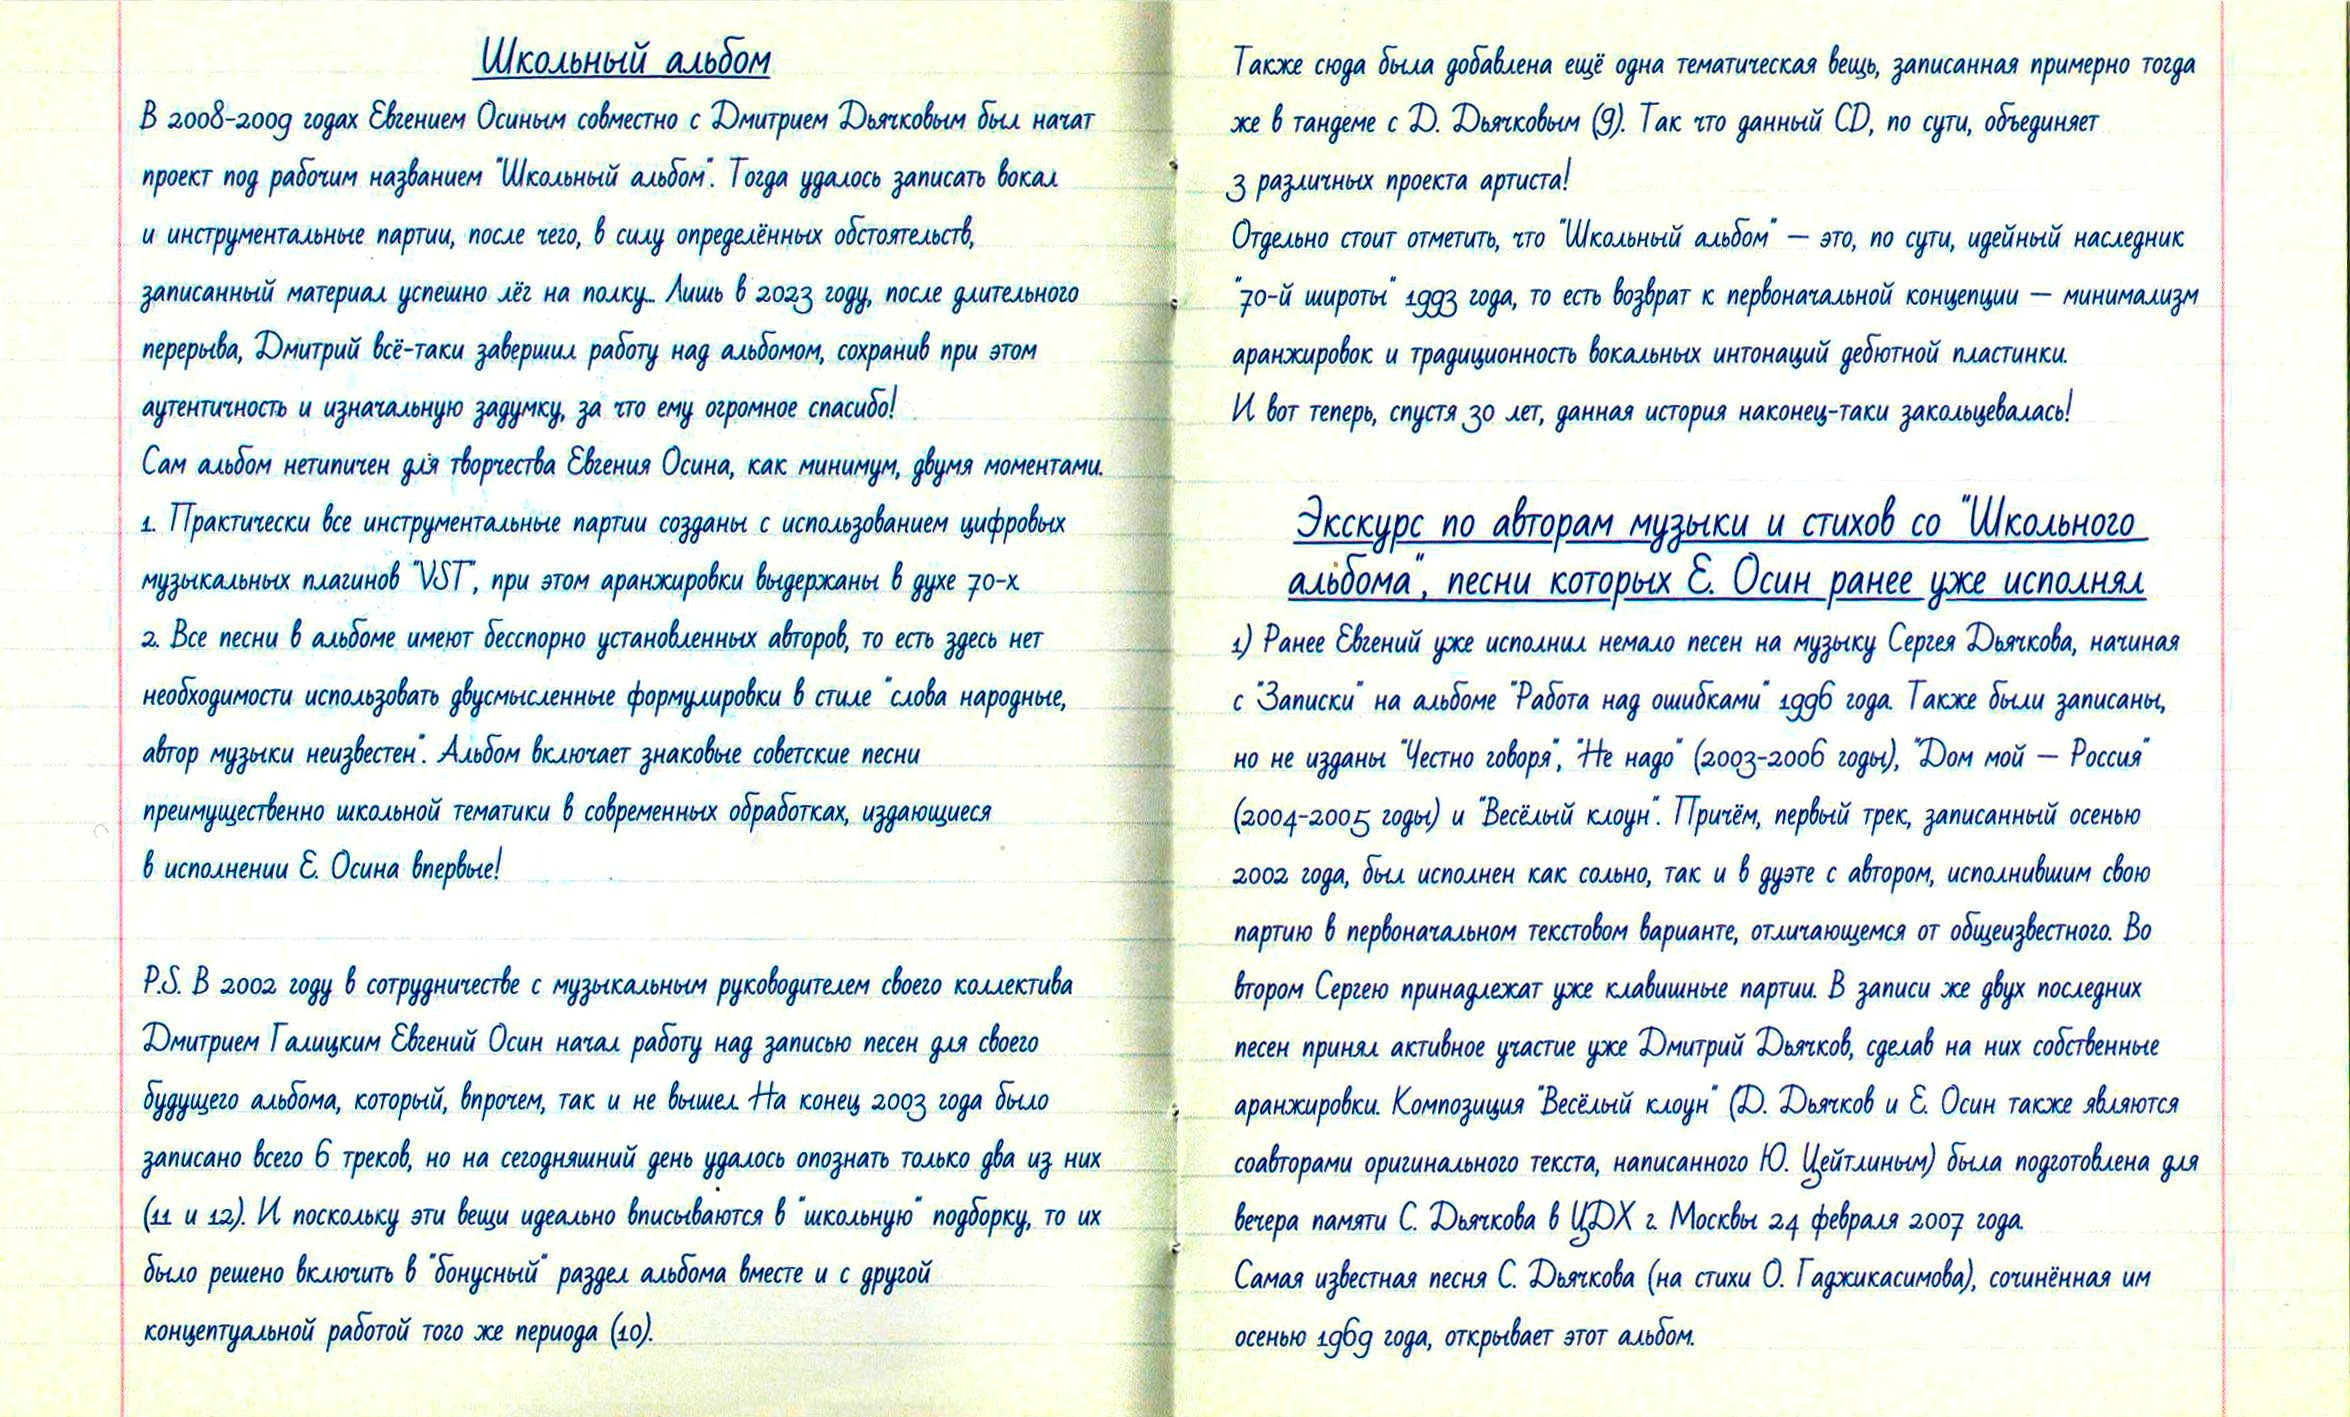 Школьный альбом
В 2008-2009 годах Евгением Осиным совместно с Дмитрием Дьячковым был начат
проект под рабочим названием "Школьный альбом". Тогда удалось записать вокал
и инструментальные партии, после чего, в силу определённых обстоятельств,
записанный материал успешно лёг на полку... Лишь в 2023 году, после длительного
перерыва, Дмитрий всё-таки завершил работу над альбомом, сохранив при этом
аутентичность и изначальную задумку, за что ему огромное спасибо!
Сам альбом нетипичен для творчества Евгения Осина, как минимум, двумя моментами.
1. Практически все инструментальные партии созданы с использованием цифровых
музыкальных плагинов "VST", при этом аранжировки выдержаны в духе 70-х
2. Все песни в альбоме имеют бесспорно установленных авторов, то есть здесь нет
необходимости использовать двусмысленные формулировки в стиле "слова народные,
автор музыки неизвестен". Альбом включает знаковые советские песни
преимущественно школьной тематики в современных обработках, издающиеся
в исполнении Е. Осина впервые!
P.S. В 2002 году в сотрудничестве с музыкальным руководителем своего коллектива
Дмитрием Галицким Евгений Осин начал работу над записью песен для своего
будущего альбома, который, впрочем, так и не вышел. На конец 2003 года было
записано всего 6 треков, но на сегодняшний день удалось опознать только два из них
(11 и 12). И поскольку эти вещи идеально вписываются в "школьную" подборку, то их
было решено включить в "бонусный" раздел альбома вместе и с другой
концептуальной работой того же периода (10).
Также сюда была добавлена ещё одна тематическая вещь, записанная примерно тогда
же в тандеме с Д. Дьячковым (9). Так что данный CD, по сути, объединяет
3 различных проекта артиста!
Отдельно стоит отметить, что "Школьный альбом" — это, по сути, идейный наследник
"70-й широты" 1993 года, то есть возврат к первоначальной концепции — минимализм
аранжировок и традиционность вокальных интонаций дебютной пластинки.
И вот теперь, спустя 30 лет, данная история наконец-таки закольцевалась!
Экскурс по авторам музыки и стихов со "Школьного
альбома", песни которых Е. Осин ранее уже исполнял
1) Ранее Евгений уже исполнил немало песен на музыку Сергея Дьячкова, начиная
с "Записки" на альбоме "Работа над ошибками" 1996 года. Также были записаны,
но не изданы "Честно говоря", "Не надо" (2003-2006 годы), "Дом мой — Россия"
(2004-2005 годы) и "Весёлый клоун". Причём, первый трек, записанный осенью
2002 года, был исполнен как сольно, так и в дуэте с автором, исполнившим свою
партию в первоначальном текстовом варианте, отличающемся от общеизвестного. Во
втором Сергею принадлежат уже клавишные партии. В записи же двух последних
песен принял активное участие уже Дмитрий Дьячков, сделав на них собственные
аранжировки. Композиция "Весёлый клоун" (Д. Дьячков и Е. Осин также являются
соавторами оригинального текста, написанного Ю. Цейтлиным) была подготовлена для
вечера памяти С. Дьячкова в ЦДХ г. Москвы 24 февраля 2007 года.
Самая известная песня С. Дьячкова (на стихи О. Гаджикасимова), сочинённая им
осенью 1969 года, открывает этот альбом.